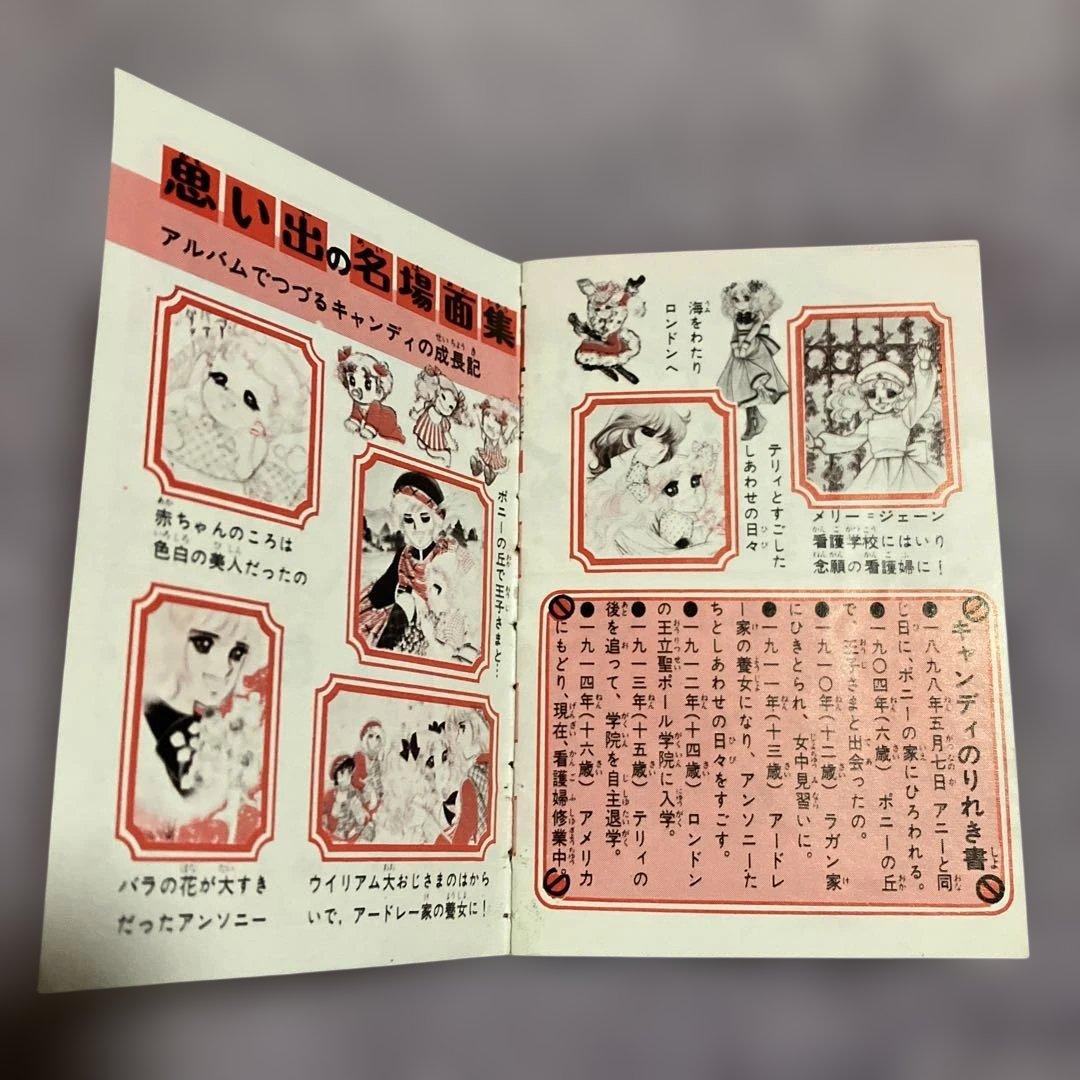 思い出の名場面集
アルバムでつづるキャンディの成長記
赤ちゃんのころは
色白の美人だったの
ボニーの丘で王子さまと…
バラの花が大すき
だったアンソニー
ウイリアム大おじさまのはから
いで、アードレー家の養女に!
海をわたり
ロンドンへ
テリィとすごした
しあわせの日々
メリー=ジェーン
看護学校にはいり
念願の看護婦に!
キャンディのりれき書
●一八九八年五月七日 アニーと同
じ日に、ポニーの家にひろわれる。
●一九〇四年(六歳) ポニーの丘
で、王子さまと出会ったの。
●一九一〇年(十二歳) ラガン家
にひきとられ、女中見習いに。
●一九一一年(十三歳) アードレ
ー家の養女になり、アンソニーた
ちとしあわせの日々をすごす。
●一九一二年(十四歳) ロンドン
の王立聖ポール学院に入学。
●一九一三年(十五歳) テリィの
後を追って、学院を自主退学。
●一九一四年(十六歳) アメリカ
にもどり、現在、看護婦修業中。